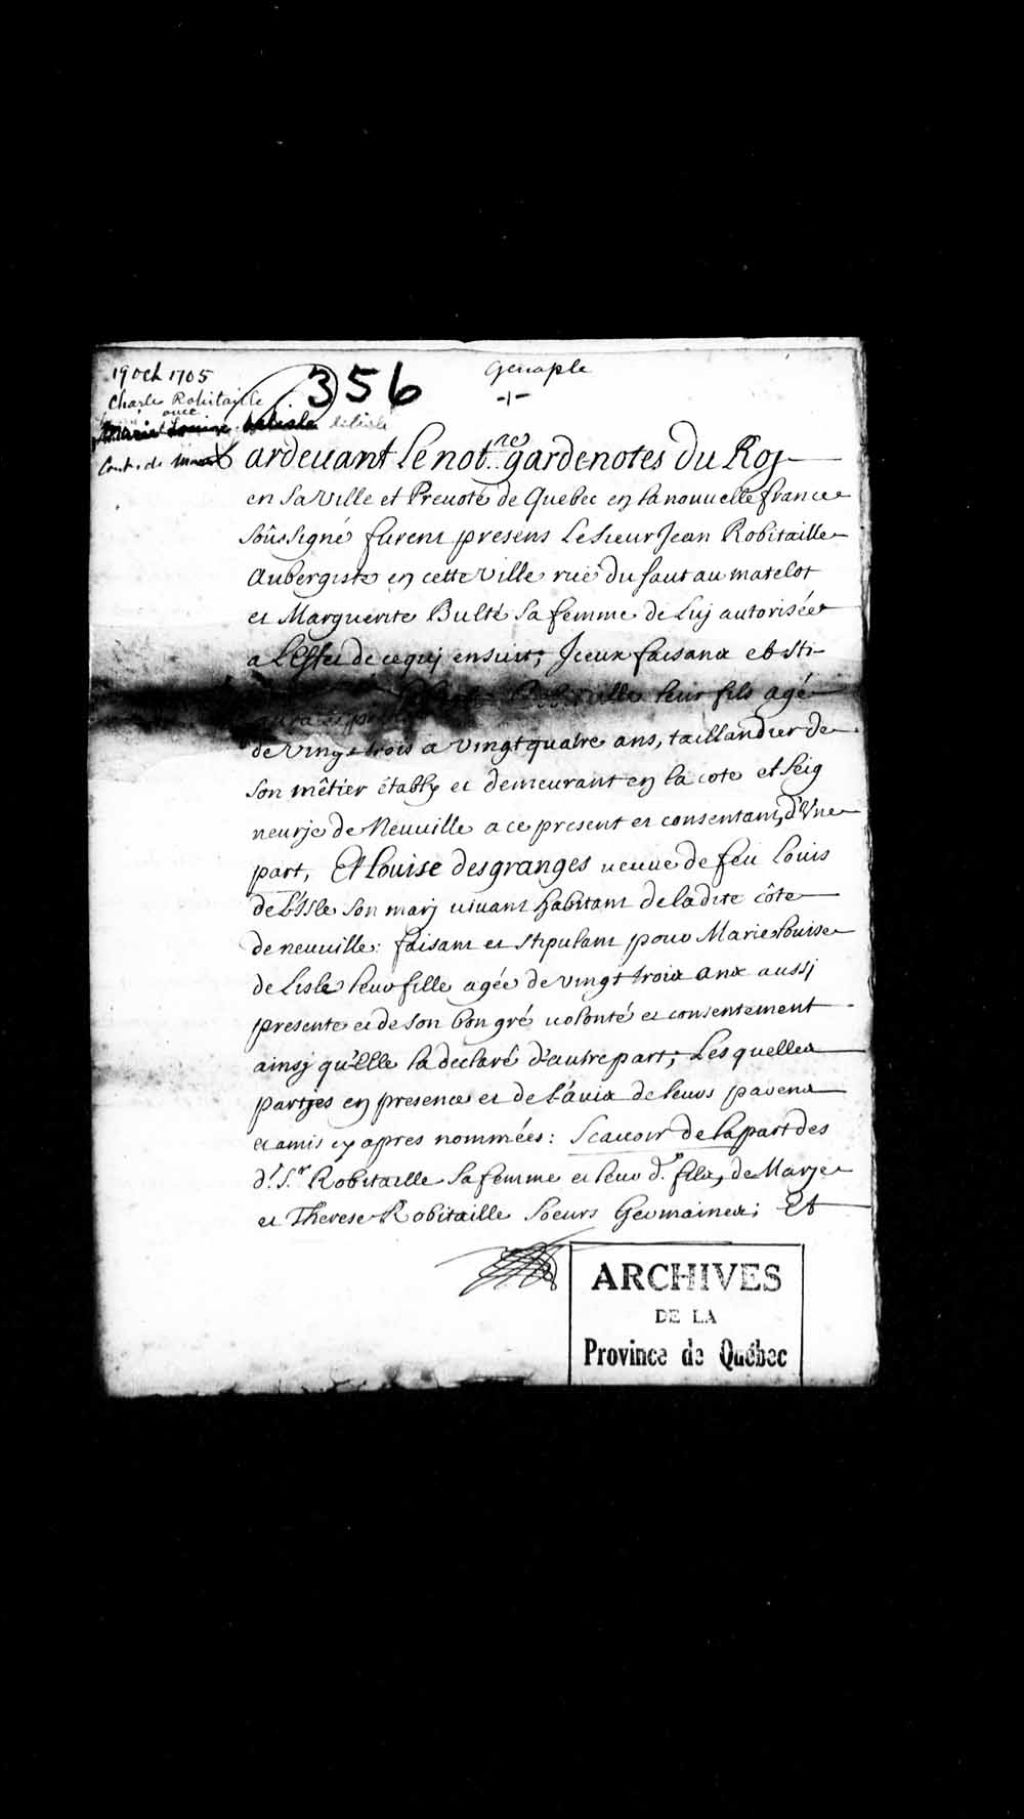 19 oct 1705
Charles Robitaille
avec
Marie Louise delisle
Cont. de mar
356
Genaple
-1-
Pardevant le not.re gardenotes du Roj
en sa ville et Prevoté de Quebec en la nouvelle france
soûssigné furent presens Le sieur Jean Robitaille
Aubergiste en cette ville ruë du saut au matelot
et Marguerite Bulté sa femme de luj autorisée
a L'effet de ce quj ensuit; Iceux faisans et sti-
leur fils agé
de vingt trois a vingt quatre ans, taillandier de
son mêtier étably et demeurant en la cote et seig
neurje de Neuville a ce present et consentant, d'Une
part, Et Louise desgranges veuve de feu Louis
de L'Isle son marj vivant habitant de ladite côte
de neuville: faisant et stipulant pour Marie Louise
de Lisle leur fille agée de vingt trois ans aussj
presente et de son bon gré volonté et consentement
ainsj qu'Elle la declaré d'autre part; Lesquelles
partjes en presence et de l'avis de leurs parens
et amis cy apres nommées: Scavoir de la part des
d.t S.r Robitaille sa femme et leur d.t fils, de Marje
et Therese Robitaille soeurs Germaines; Et
ARCHIVES
DE LA
Province de Québec